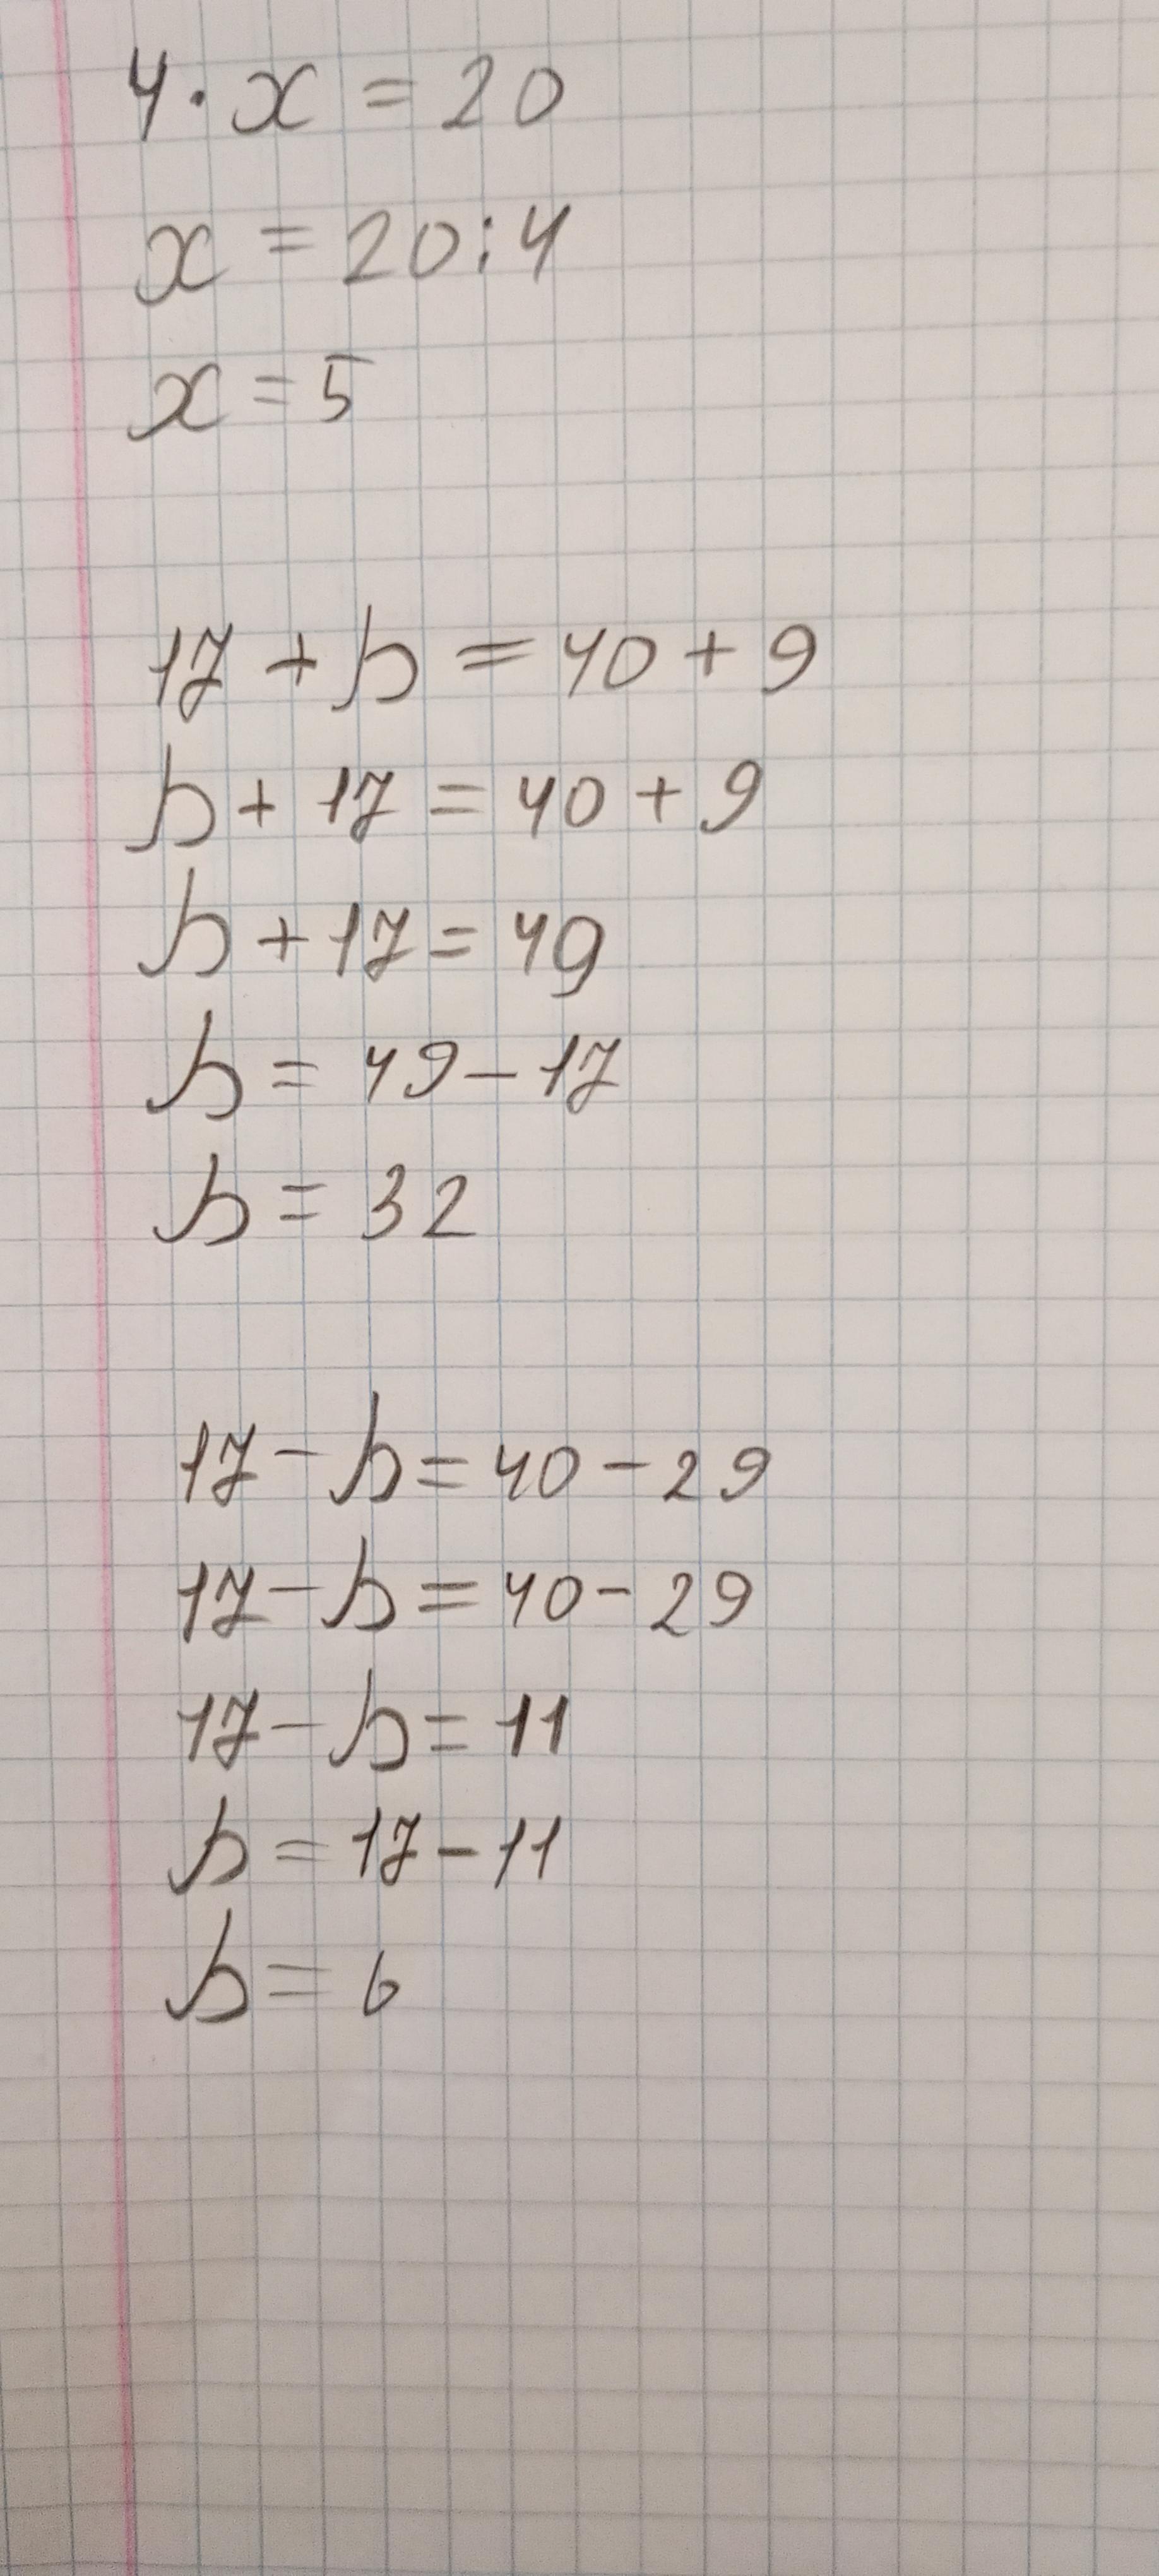 4 · x = 20
x = 20 : 4
x = 5
17 + b = 40 + 9
b + 17 = 40 + 9
b + 17 = 49
b = 49 - 17
b = 32
17 - b = 40 - 29
17 - b = 40 - 29
17 - b = 11
b = 17 - 11
b = 6